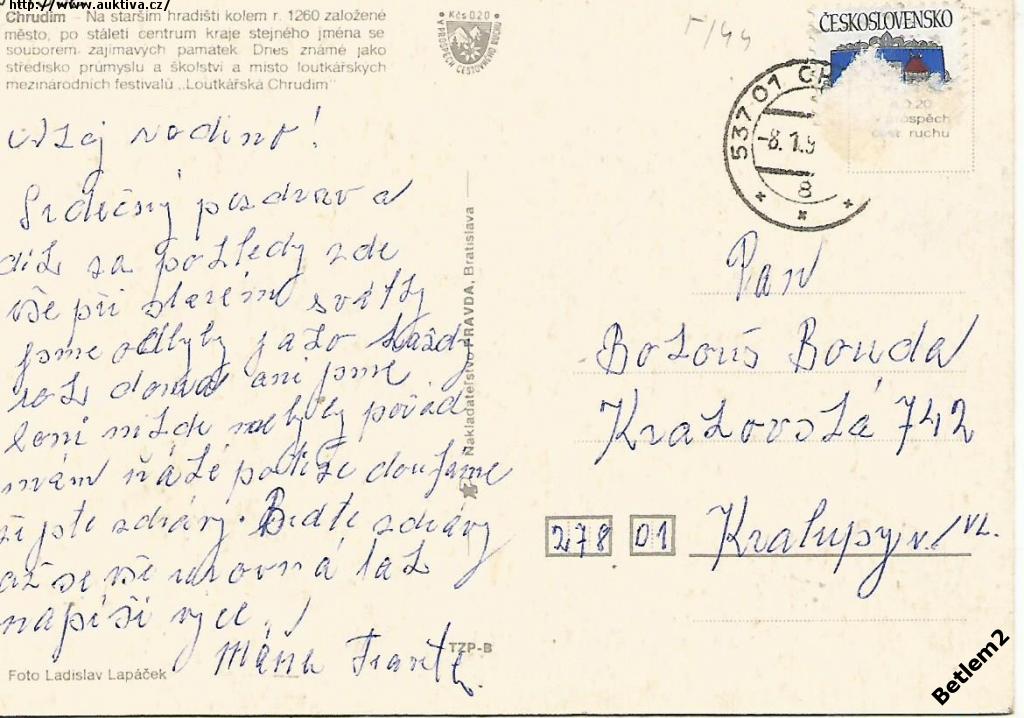 http://www.auktiva.cz/
Chrudim - Na starším hradišti kolem r. 1260 založené
město, po staletí centrum kraje stejného jména se
souborem zajímavých památek. Dnes známé jako
středisko průmyslu a školství a místo loutkářských
mezinárodních festivalů „Loutkářská Chrudim"
Kčs 0.20
V PROSPĚCH CESTOVNÉHO RUCHU
T/44
ČESKOSLOVENSKO
537 01 CH
-8.1.9
8
0.20
v prospěch
cest. ruchu
rodino!
Srdečný pozdrav a
dík za pohledy zde
vše při starém svátky
jsme odbyly jako každý
rok doma ani jsme
loni nikde nebyly pořád
mám potíže doufáme
že jste zdrávy. Buďte zdrávy
až se vše urovná tak
napíši více!
Máňa Franta.
Nakladateľstvo PRAVDA, Bratislava
TZP-B
Foto Ladislav Lapáček
Pan
Bohouš Bouda
Kralovská 742
278 01 Kralupy n./Vl.
Betlem2